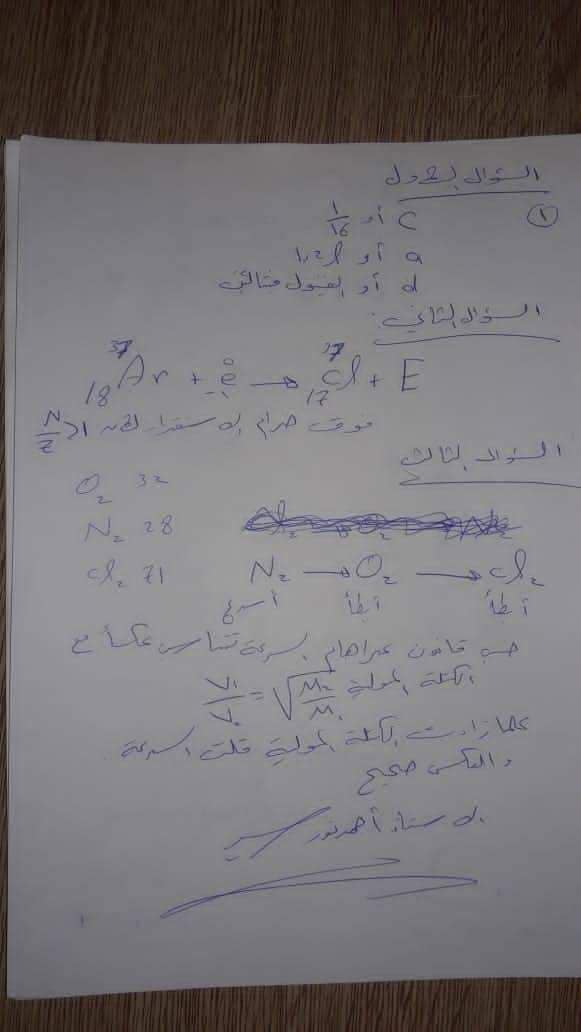 السؤال الأول
① C أو 1/16
a أو 1,2 l
d أو الفينول فتالئين
السؤال الثاني:
³⁷₁₈Ar + ⁰₋₁e → ³⁷₁₇Cl + E
فوق حزام الاستقرار لأن 1< N/Z
السؤال الثالث
O₂ 32
N₂ 28
Cl₂ 71
N₂ → O₂ → Cl₂
أسرع أبطأ أبطأ
حسب قانون غراهام السرعة تتناسب عكساً مع
الكتلة المولية V₁/V₂ = √M₂/M₁
كلما زادت الكتلة المولية قلت السرعة
والعكس صحيح
الاستاذ أحمد نور